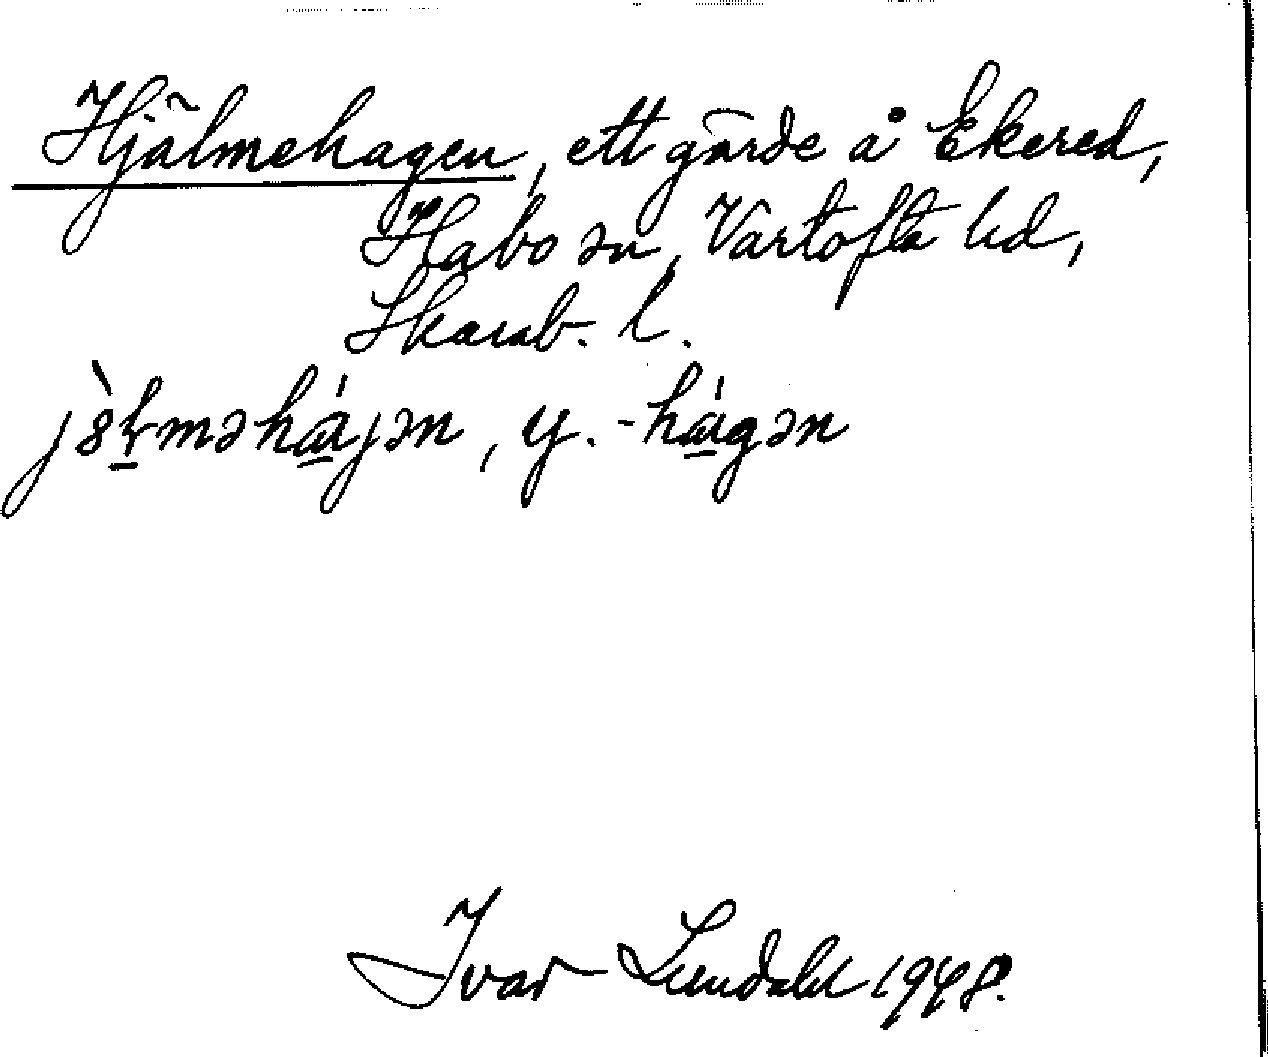 Hjälmehagen, ett gärde å Ekered,
Habo sn, Vartofta hd,
Skarab. l.
jè8ḷməhájən, y. -hágən
Ivar Lundahl 1948.